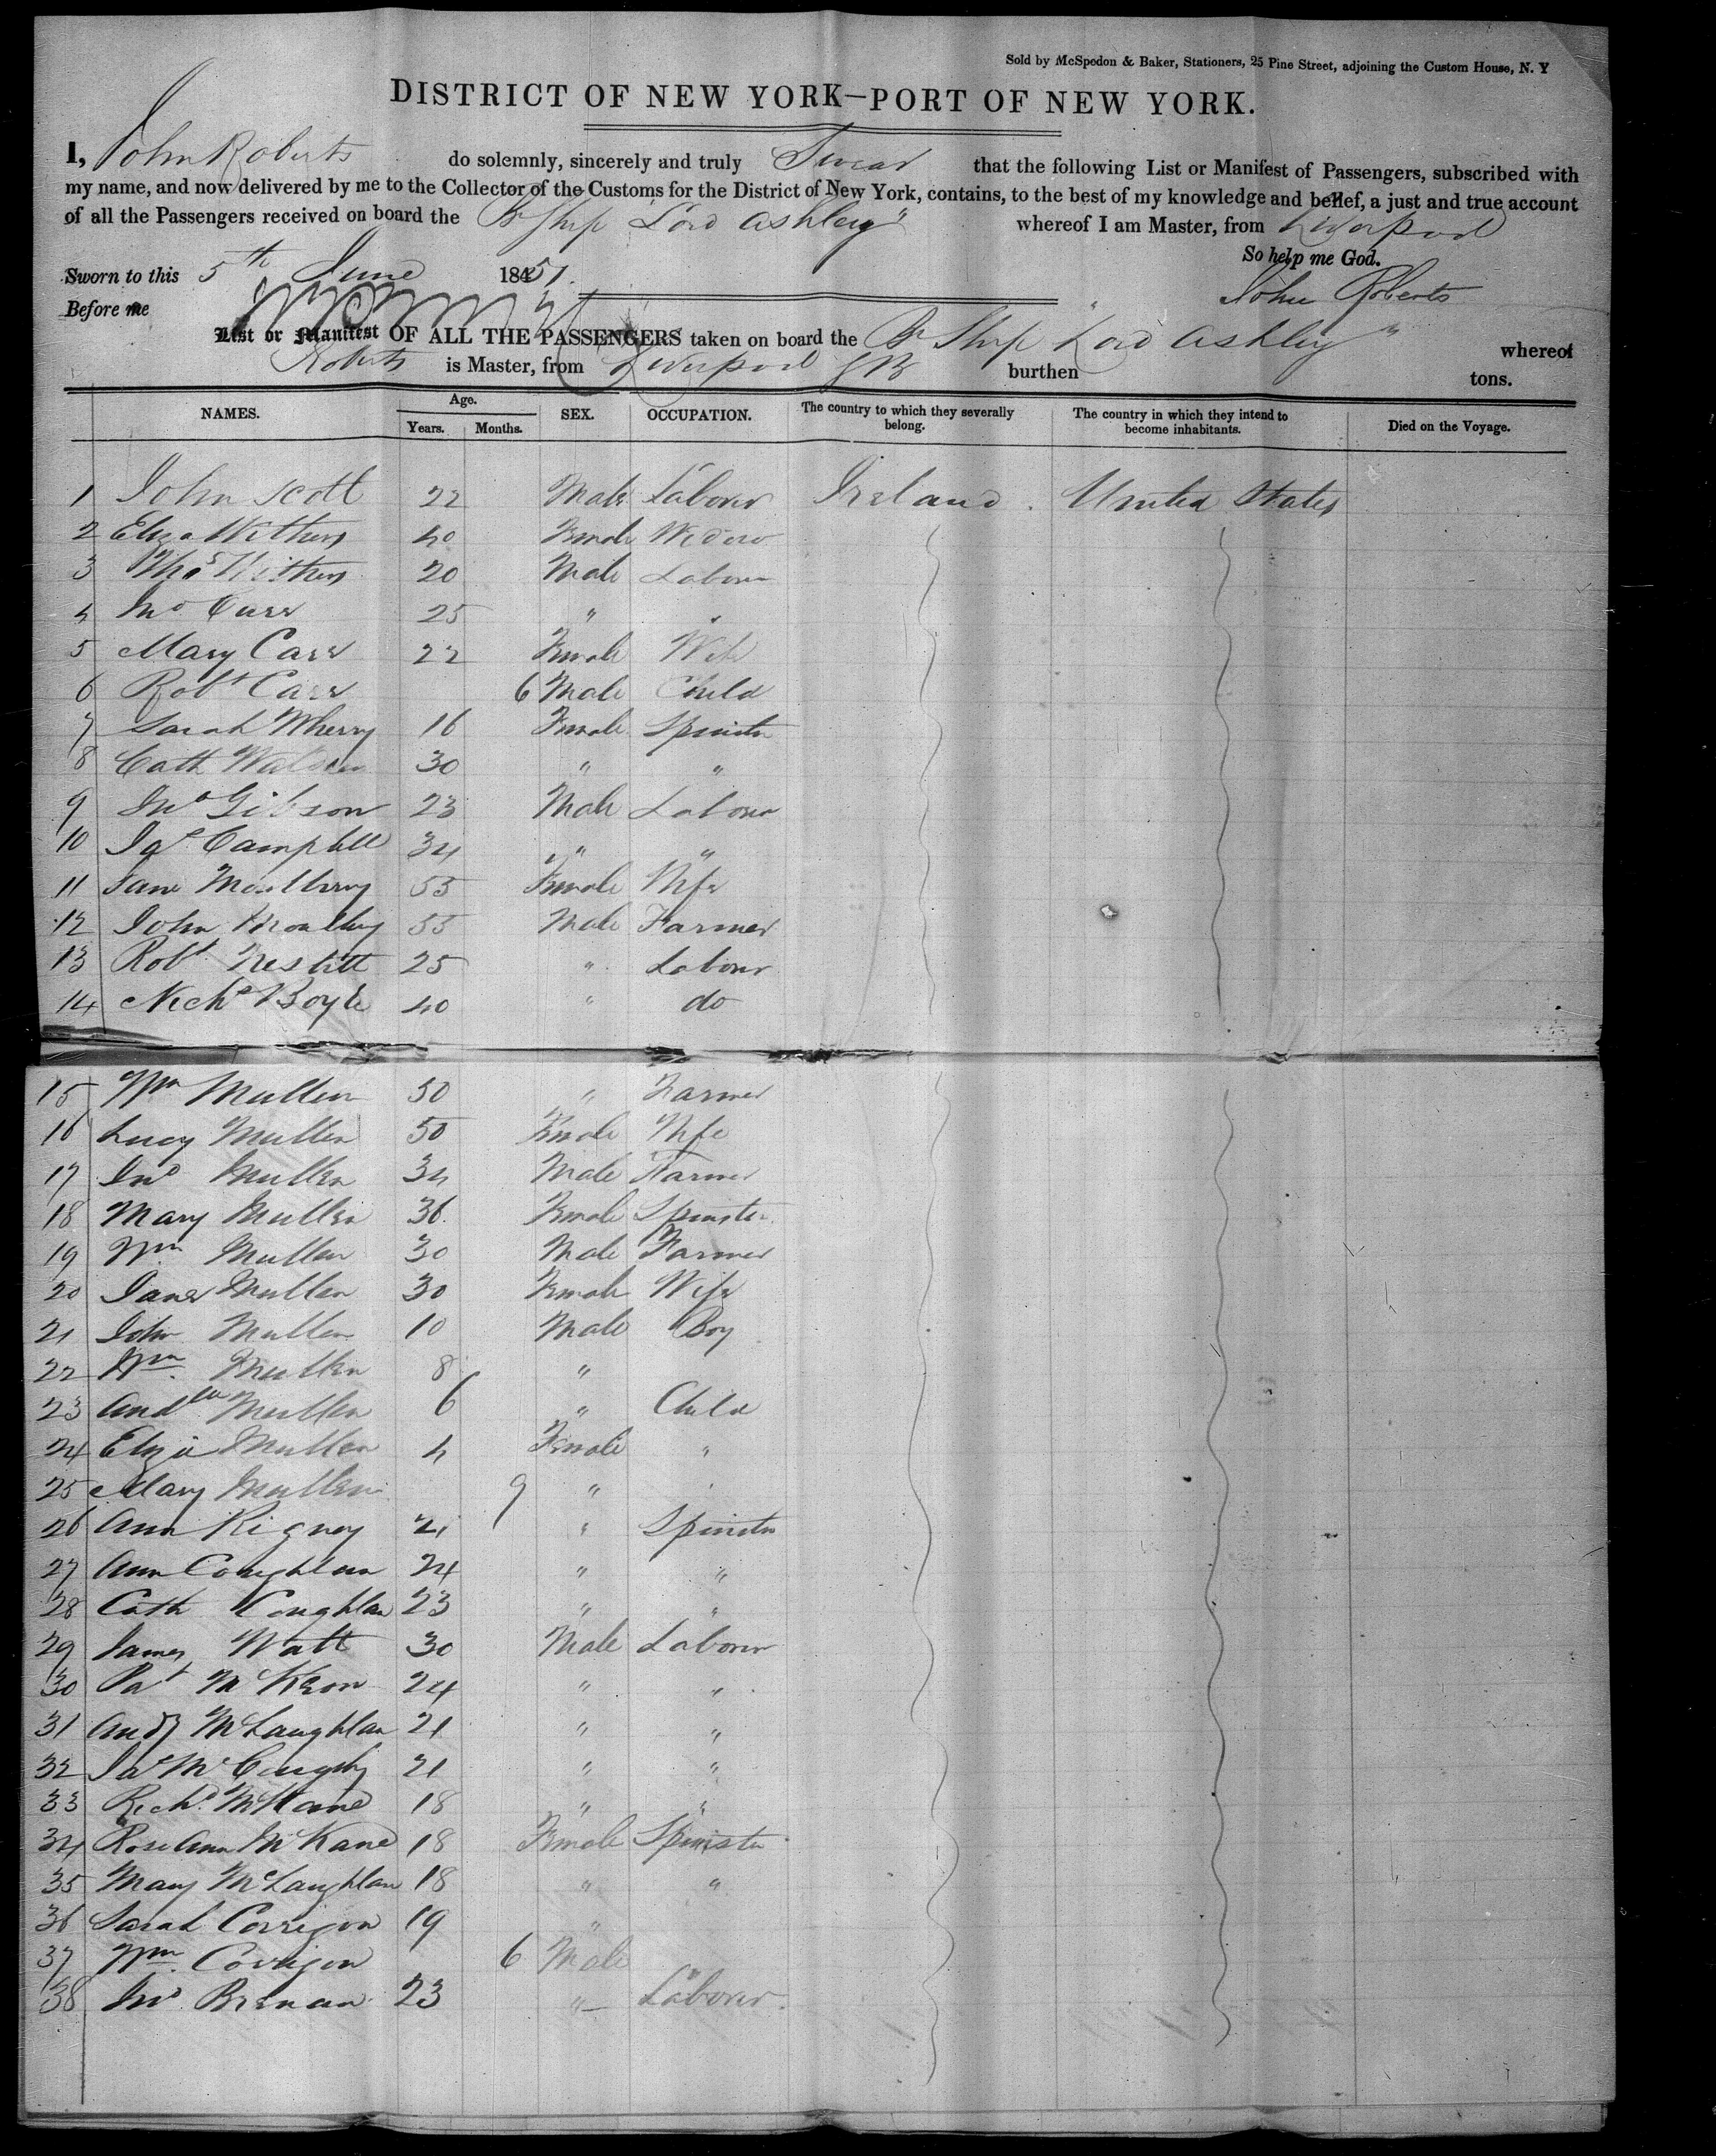 Sold by McSpedon & Baker, Stationers, 25 Pine Street, adjoining the Custom House, N. Y
DISTRICT OF NEW YORK—PORT OF NEW YORK.
I, John Roberts do solemnly, sincerely and truly Swear that the following List or Manifest of Passengers, subscribed with
my name, and now delivered by me to the Collector of the Customs for the District of New York, contains, to the best of my knowledge and belief, a just and true account
of all the Passengers received on board the Br Ship "Lord Ashley" whereof I am Master, from Liverpool
So help me God.
Sworn to this 5th June 1851.
John Roberts
Before me
List or Manifest OF ALL THE PASSENGERS taken on board the Br Ship "Lord Ashley" whereof
Roberts is Master, from Liverpool GB burthen tons.
NAMES. Age. Years. Months. SEX. OCCUPATION. The country to which they severally belong. The country in which they intend to become inhabitants. Died on the Voyage.
1 John Scott 22 Male Laborer Ireland. United States
2 Eliza Withers 40 Female Widow
3 Thos Withers 20 Male Laborer
4 Jno Carr 25 " "
5 Mary Carr 22 Female Wife
6 Robt Carr 6 Male Child
7 Sarah Wherry 16 Female Spinster
8 Cath Watson 30 " "
9 Jno Gibson 23 Male Laborer
10 Jas Campbell 34 " "
11 Jane 55 Female Wife
12 John 55 Male Farmer
13 Robt Nesbitt 25 " Laborer
14 Nichs Boyle 40 " do
15 Wm Mullen 50 " Farmer
16 Lucy Mullen 50 Female Wife
17 Jno Mullen 34 Male Farmer
18 Mary Mullen 36 Female Spinster
19 Wm Mullen 30 Male Farmer
20 Jane Mullen 30 Female Wife
21 John Mullen 10 Male Boy
22 Wm. Mullen 8 "
23 Andew Mullen 6 " Child
24 Eliza Mullen 4 Female "
25 Mary Mullen 9 " "
26 Ann Rigney 21 " Spinster
27 Ann Coughlan 24 " "
28 Cath Coughlan 23 " "
29 James Watt 30 Male Laborer
30 Pat McKeon 24 " "
31 Andw McLaughlan 21 " "
32 Jas 21 " "
33 Richd. McKane 18 " "
34 Rose Ann McKane 18 Female Spinster
35 Mary McLaughlan 18 " "
36 Sarah Corrigon 19 "
37 Wm. Corrigon 6 Male
38 Jno Brenan 23 " Laborer